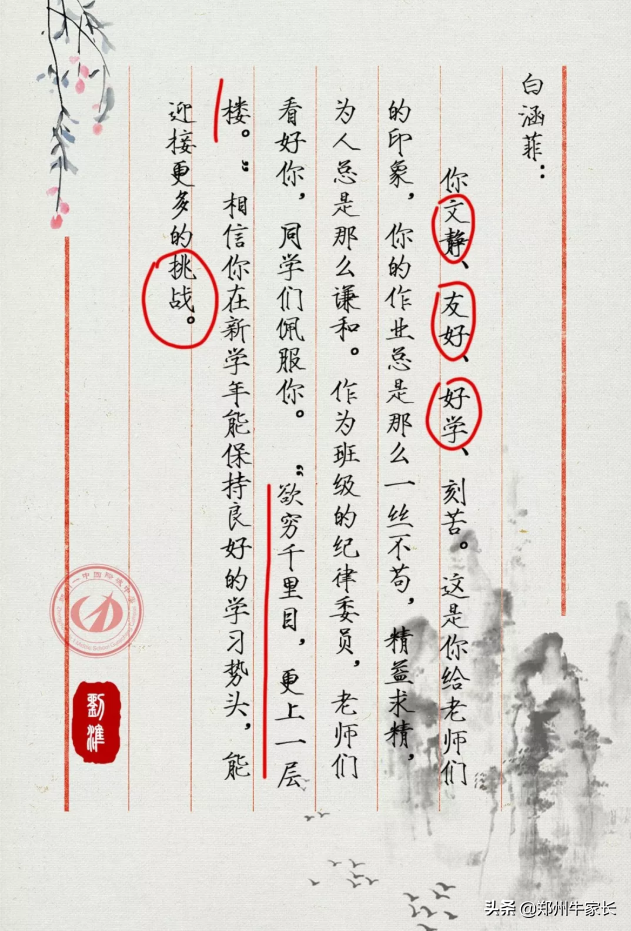 白涵菲：
你文静、友好、好学、刻苦。这是你给老师们
的印象，你的作业总是那么一丝不苟，精益求精，
为人总是那么谦和。作为班级的纪律委员，老师们
看好你，同学们佩服你。“欲穷千里目，更上一层
楼。”相信你在新学年能保持良好的学习势头，能
迎接更多的挑战。
刘准
头条 @郑州牛家长